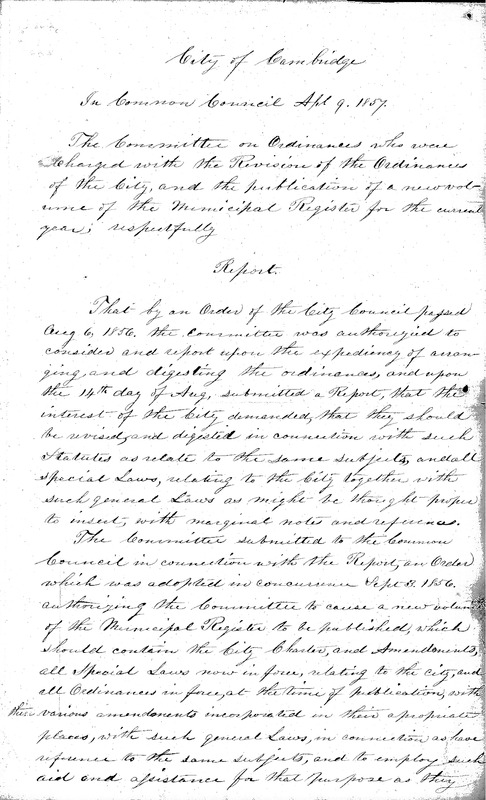 City of Cambridge
In Common Council Apl 9. 1857.
The Committee on Ordinances who were
Charged with the Revision of the Ordinances
of the City, and the publication of a new vol-
ume of the Municipal Register for the current
year; respectfully
Report.
That by an Order of the City Council passed
Aug 6, 1856. the Committee was authorized to
consider and report upon the expediency of arran-
ging, and digesting the ordinances, and upon
the 14th day of Aug, submitted a Report, that the
interest of the City demanded, that they should
be revised, and digested in connection with such
Statutes as relate to the same subjects, and all
special Laws, relating to the City together with
such general Laws as might be thought proper
to insert, with marginal notes and references.
The Committee submitted to the Common
Council in connection with the Report, an Order
which was adopted in concurrence Sept 3. 1856.
authorizing the Committee to cause a new volume
of the Municipal Register to be published, which
should contain the City Charter, and Amendments,
all Special Laws now in force, relating to the city, and
all Ordinances in force, at the time of publication, with
their various amendments incorporated in their apropriate
places, with such general Laws, in connection as have
reference to the same subjects, and to employ such
aid and assistance for that purpose as they